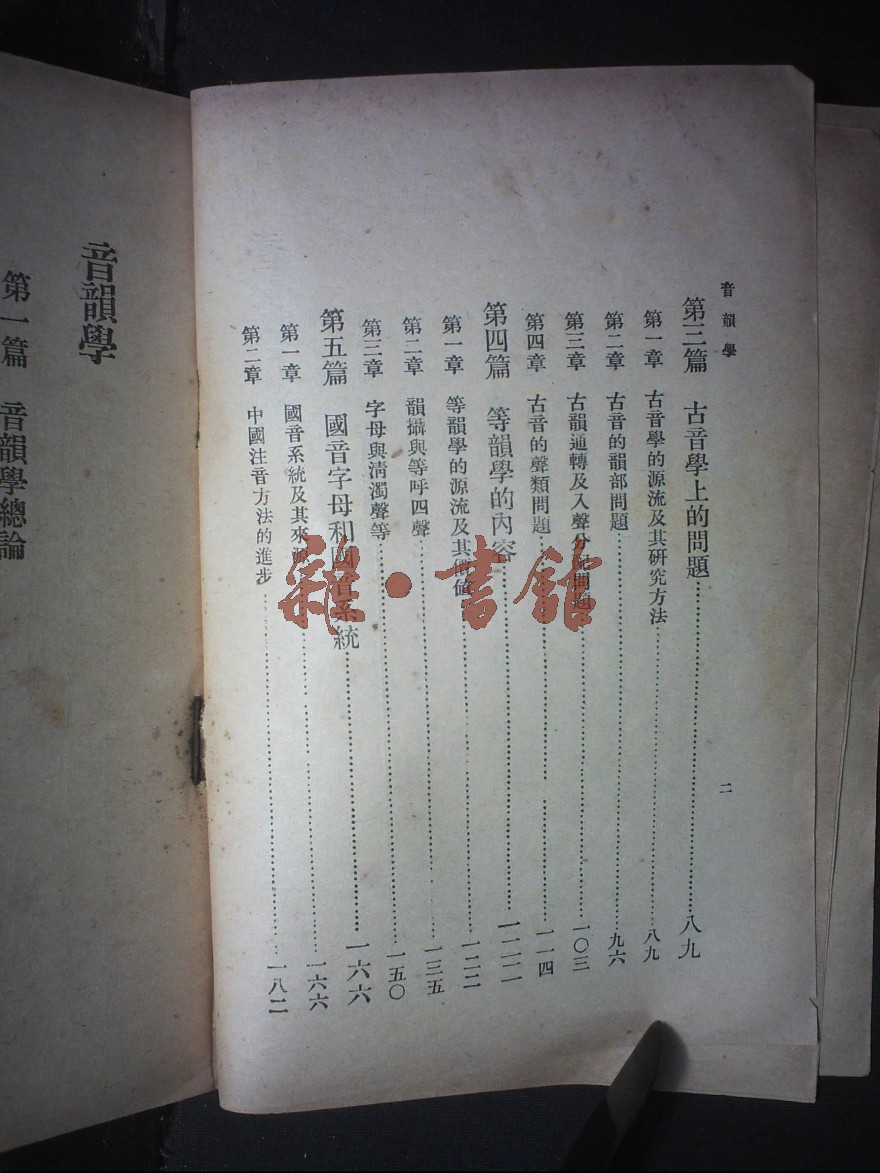 音韻學
二
第三篇 古音學上的問題……八九
第一章 古音學的源流及其研究方法……八九
第二章 古音的韻部問題……九六
第三章 古韻通轉及入聲分配問題……一〇三
第四章 古音的聲類問題……一一四
第四篇 等韻學的內容……一二二
第一章 等韻學的源流及其價值……一二二
第二章 韻攝與等呼四聲……一三五
第三章 字母與清濁聲等……一五〇
第五篇 國音字母和國音系統……一六六
第一章 國音系統及其來源……一六六
第二章 中國注音方法的進步……一八二
音韻學
第一篇 音韻學總論
雜·書館